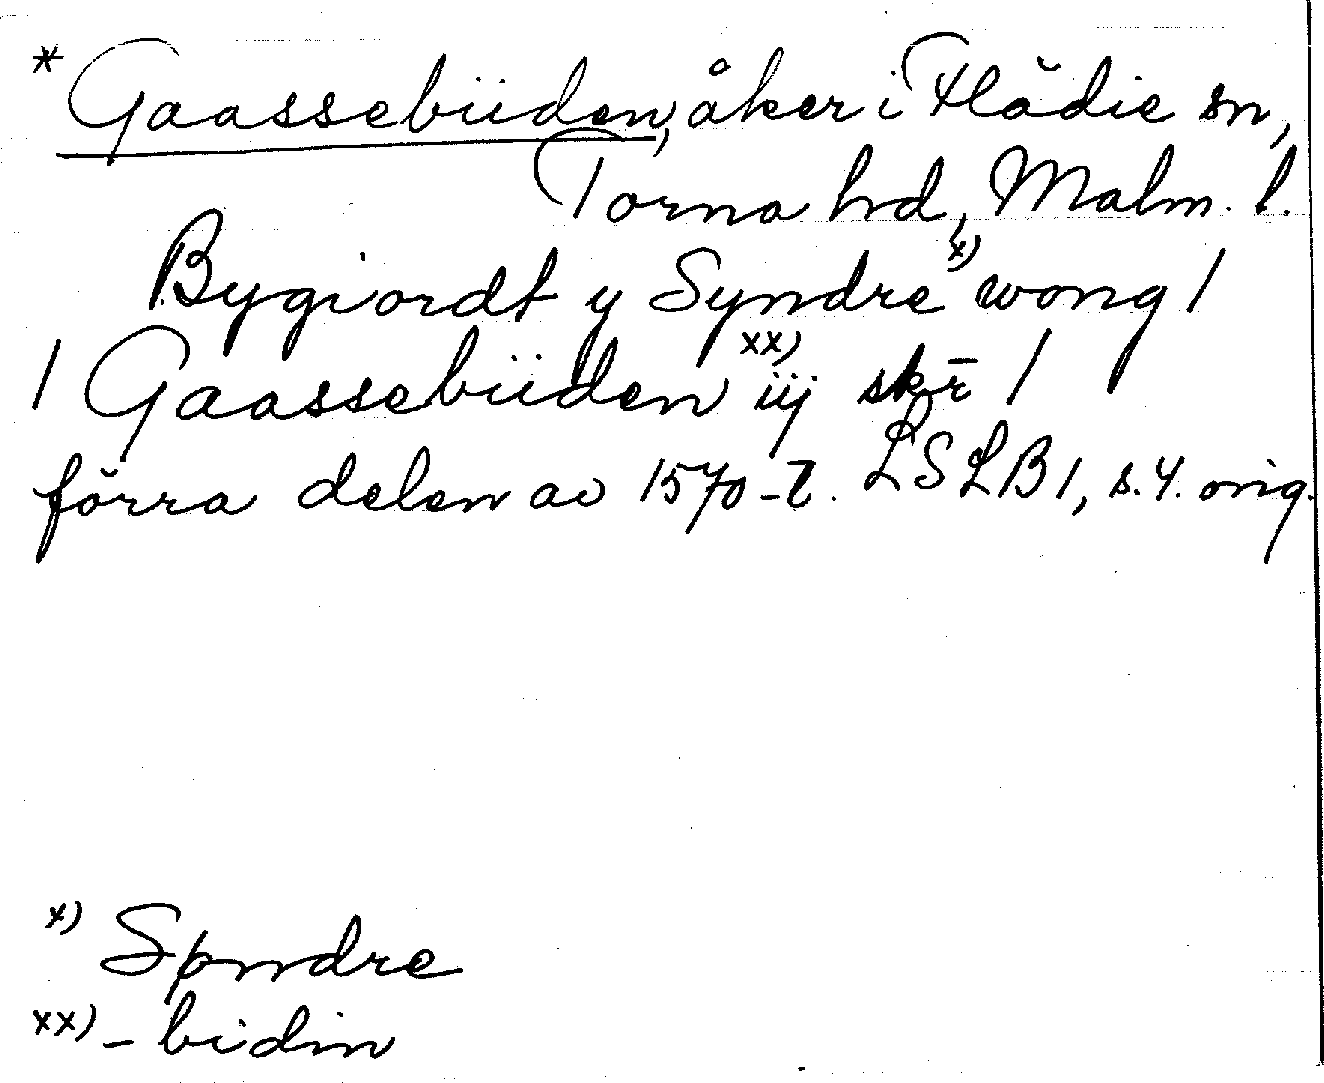 * Gaassebüden, åker i Flädie sn,
Torna hrd, Malm. l.
Bygiordt y Syndre x) wong /
/ Gaassebüden xx) iij skr̄ /
förra delen av 1570-t. LSLB 1, s. 4. orig.
x) Søndre
xx) - bidin